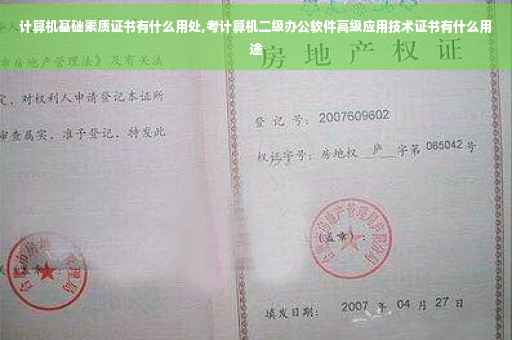 计算机基础素质证书有什么用处,考计算机二级办公软件高级应用技术证书有什么用
途
房地产权证
房地产管理法》及有关法
定，对权利人申请登记本证所
审查属实，准予登记，特发此
登记号：2007609602
权证字号：房地权 庐 字第 065042 号
(盖章)：
填发日期：2007 年 04 月 27 日